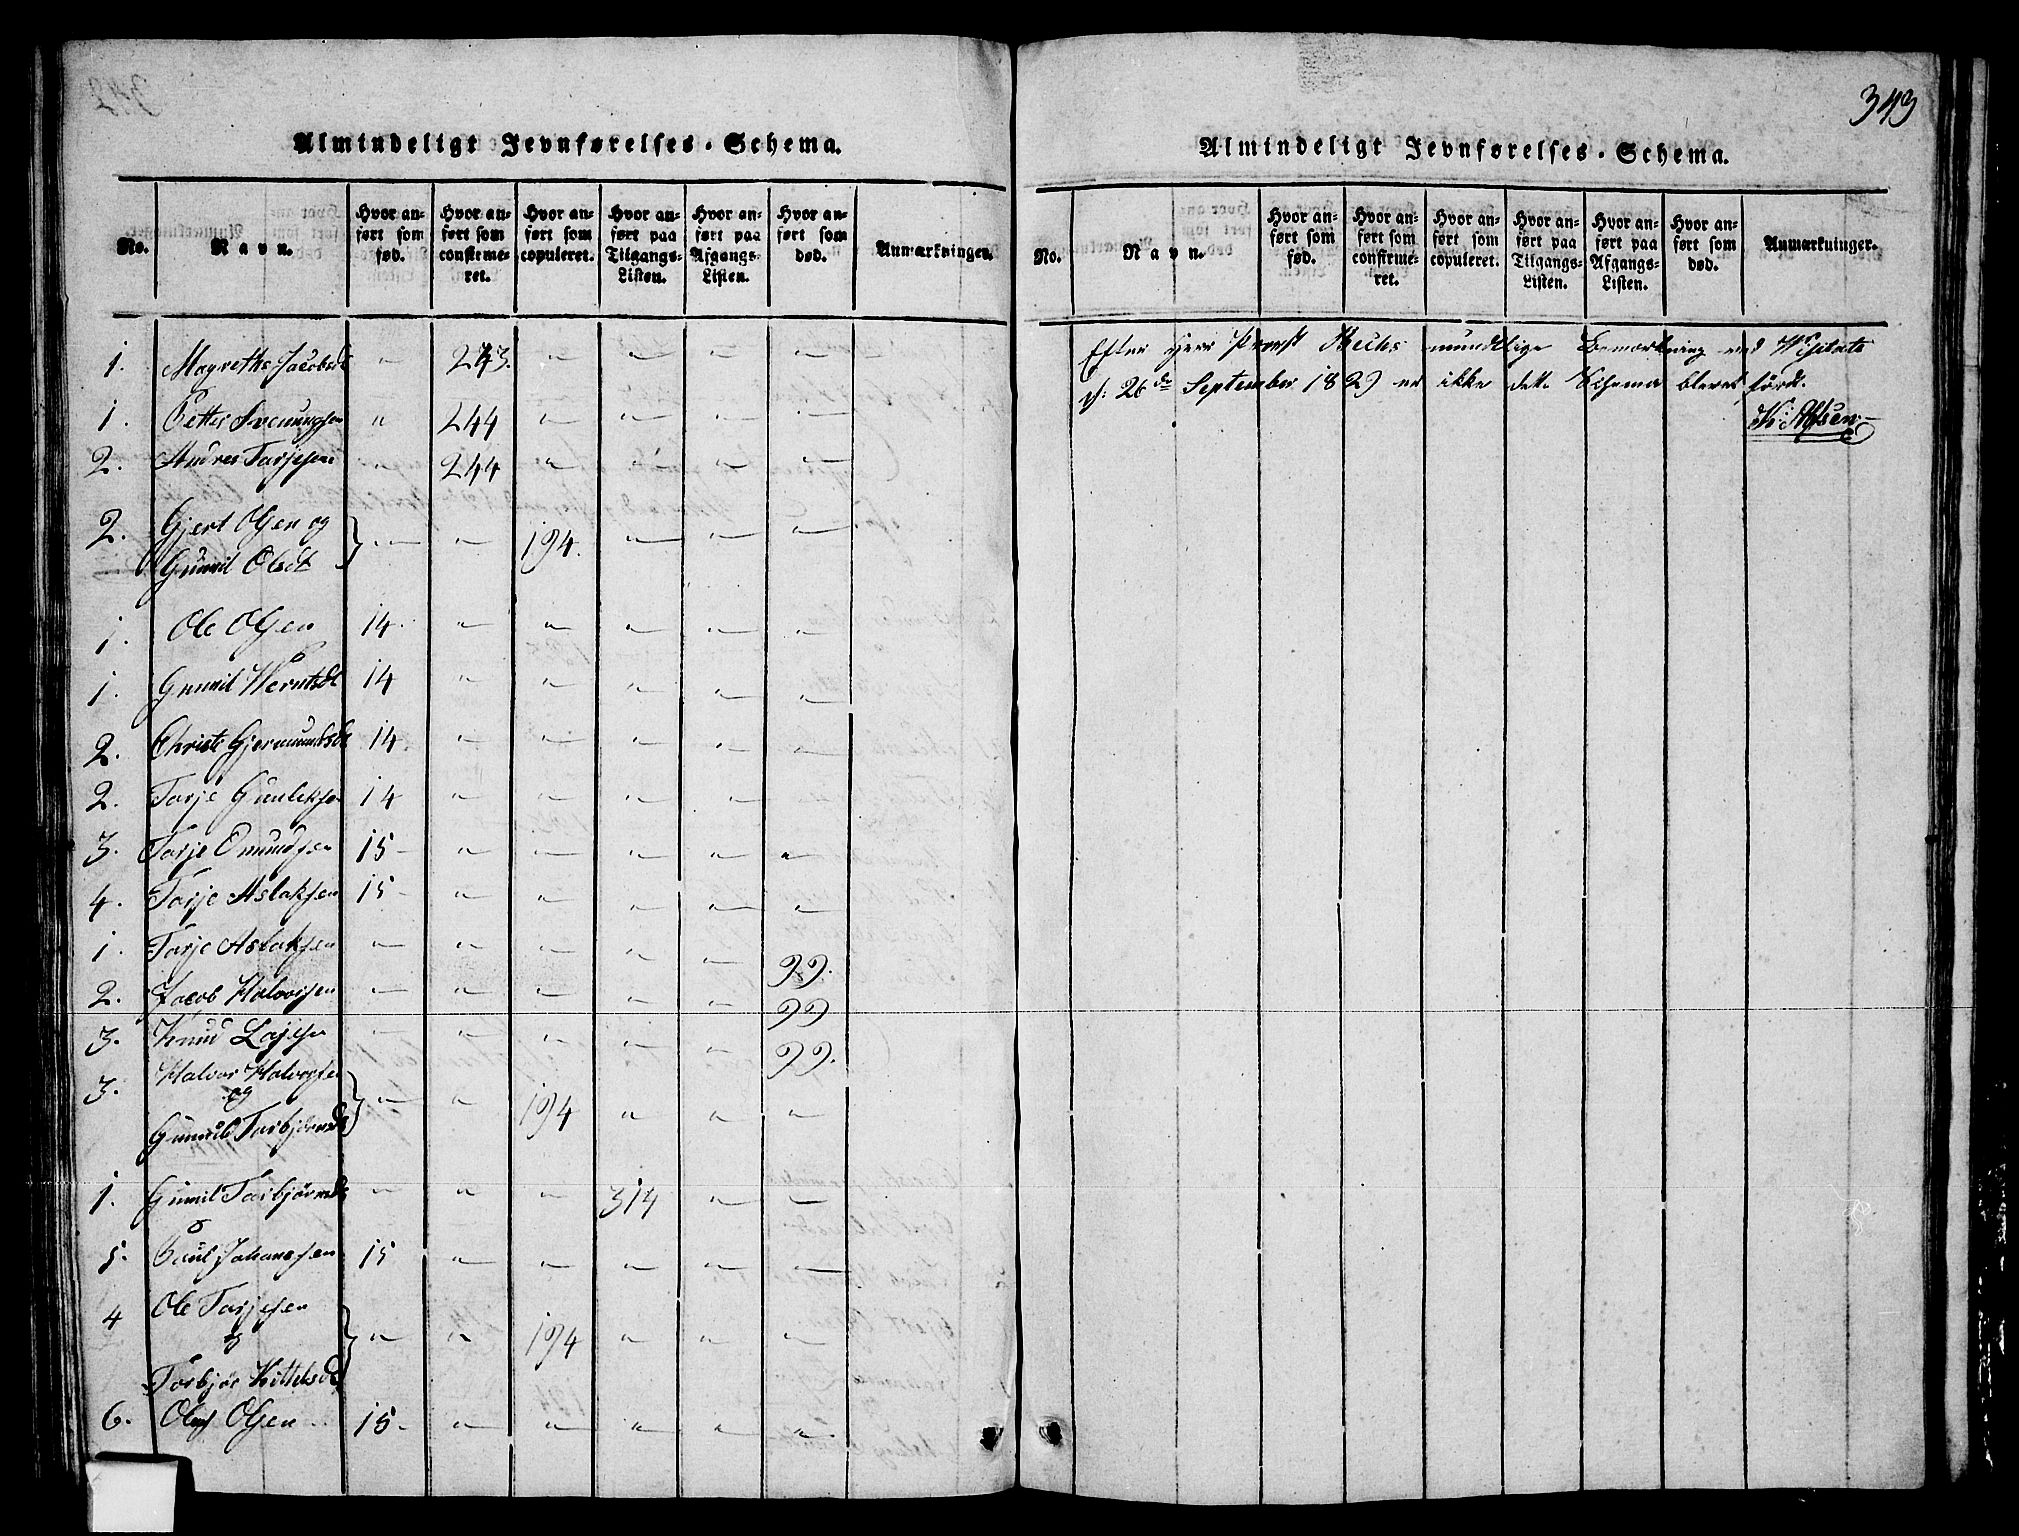 343
Almindeligt Jevnførelses-Schema.
No.
Navn.
Hvor anført som fød.
Hvor anført som confirmeret.
Hvor anført som copuleret.
Hvor anført paa Tilgangs-Listen.
Hvor anført paa Afgangs-Listen.
Hvor anført som død.
Anmærkninger.
1. Magrethe Jacobsd " 243. " " " "
1. Petter Svenungsen " 244 " " " "
2. Andres Tarjesen " 244 " " " "
2. Gjert Olsen og
Gunnil Olsdt " " 194. " " "
1. Ole Olsen 14. " " " " "
1. Gunnil Werntsdt 14 " " " " "
2. Christe Gjermundsdt 14. " " " " "
2. Tarje Gunleksen 14 " " " " "
3. Tarje Omundsen 15 " " " " "
4. Tarje Aslaksen 15 " " " " "
1. Tarje Aslaksen " " " " " 99.
2. Jacob Halvorsen " " " " " 99
3. Knud " " " " " 99.
3. Halvor Halvorsen
og
Gunnild Tarbjørnsdt " " 194 " " "
1. Gunnil Tarbjørnsdt " " " 314 " "
5. Poul Johannesen 15 " " " " "
4 Ole Tarjesen
&
Torbjør Kittelsd " " 194 " " "
6. Oluf Olsen 15 " " " " "
Almindeligt Jevnførelses-Schema.
No.
Navn.
Hvor anført som fød.
Hvor anført som confirmeret.
Hvor anført som copuleret.
Hvor anført paa Tilgangs-Listen.
Hvor anført paa Afgangs-Listen.
Hvor anført som død.
Anmærkninger.
Efter Herr Provst mundtlige Bemærkning ved Visitats
d: 26de September 1829 er ikke dette Schema blevet ført.